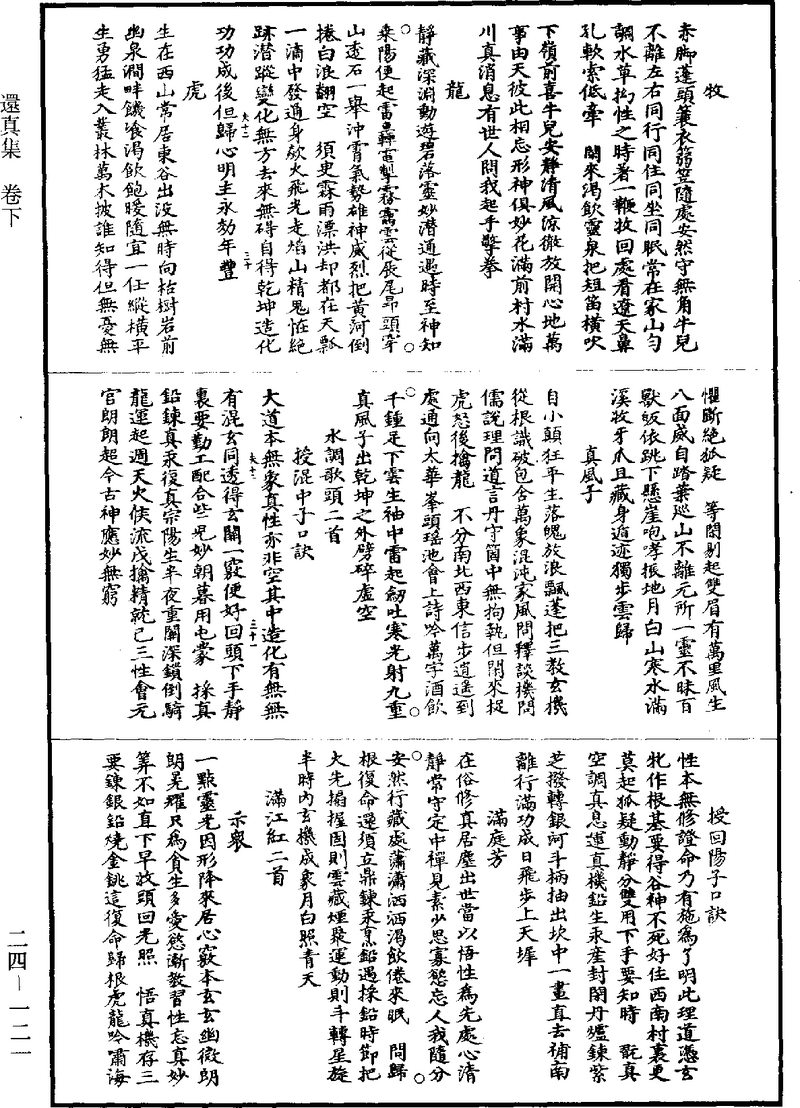 還真集　卷下
牧
赤脚蓬頭簑衣篛笠隨處安然守無角牛兒
不離左右同行同住同坐同眠常在家山勻
調水草拘性之時著一鞭牧回處看遼天鼻
孔軟索低牽　閑來渴飲靈泉把短笛橫吹
下嶺前喜牛兒安靜清風涼徹放開心地萬
事由天彼此相忘形神俱妙花滿前村水滿
川真消息有世人問我起手擎拳
龍
靜藏深淵動遊碧落靈妙潛通遇時至神知
乘陽便起雷轟電掣霧靄雲從辰尾昂頭穿
山透石一舉沖霄氣勢雄神威烈把黃河倒
捲白浪翻空　須臾霖雨漂洪却都在天瓢
一滴中發通身歘火飛光走焰山精鬼怪絕
跡潛蹤變化無方去來無碍自得乾坤造化
夫十二
三十
功功成後但歸心明主永効年豐
虎
生在西山常居東谷出沒無時向枯樹岩前
幽泉澗畔饑飡渴飲飽暖隨宜一任縱橫平
生勇猛走入叢林萬木披誰知得但無憂無
懼斷絕狐疑　等閑剔起雙眉有萬里風生
八面威自踏葉廵山不離元所一靈不昧百
獸皈依跳下懸崖咆哮振地月白山寒水滿
溪牧牙爪且藏身遁迹獨步雲歸
真風子
自小顛狂平生落魄放浪飄蓬把三教玄機
從根識破包含萬象混沌家風問釋談機問
儒說理問道言丹守箇中無拘執但閑來捉
虎怒後擒龍　不分南北西東信步逍遙到
處通向太華峯頭瑤池會上詩吟萬字酒飲
千鍾足下雲生袖中雷起劒吐寒光射九重
真風子出乾坤之外劈碎虛空
水調歌頭二首
授混中子口訣
大道本無象真性亦非空其中造化有無無
夫十二
三十一
有混玄同透得玄關一竅便好回頭下手靜
裏要動工配合些兒妙朝暮用屯蒙　採真
鉛鍊真汞復真宗陽生半夜重關深鎖倒騎
龍運起週天火候流戊擒精就己三性會元
官朗朗超今古神應妙無窮
授回陽子口訣
性本無修證命乃有施為了明此理道憑玄
牝作根基要得谷神不死好住西南村裏更
莫起狐疑動靜分雙用下手要知時　翫真
空調真息運真機鉛生汞產封閉丹爐鍊紫
芝撥轉銀河斗柄抽出坎中一畫直去補南
離行滿功成日飛步上天墀
滿庭芳
在俗修真居塵出世當以悟性為先處心清
靜常守定中禪見素少思寡慾忘人我隨分
安然行藏處瀟瀟洒洒渴飲倦來眠　問歸
根復命還須立鼎鍊汞烹鉛遇採鉛時節把
大先搨握固則雲藏煙聚運動則斗轉星旋
半時內玄機成象月白照青天
滿江紅二首
示衆
一點靈光因形降來居心竅本玄玄幽微朗
朗晃耀只為貪生多愛慾漸教習性忘真妙
算不如直下早收頭回光照　悟真機存三
要鍊銀鉛燒金銚這復命歸根虎龍吟嘯海
二四—一二一